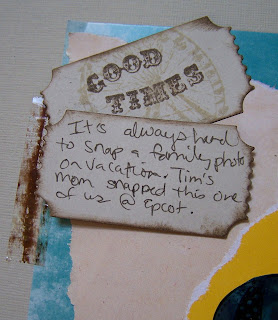 GOOD
TIMES
It's always hard
to snap a family photo
on vacation. Tim's
mom snapped this one
of us @ Epcot.